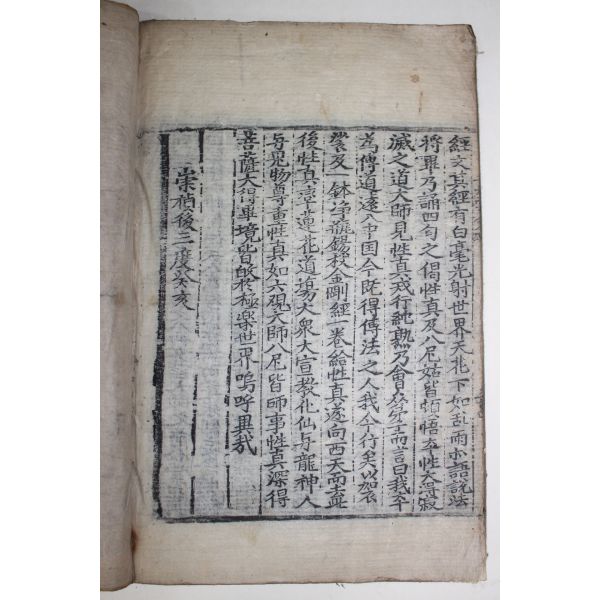 經文其經有白毫光射世界天花下如乱雨小語說法
將畢乃誦四句之偈性真及八尼姑皆頓悟本性大得寂
滅之道大師見性真戒行純熟乃會衆弟而言曰我本
為傳道遠入中国今旣得傳法之人我今行矣以袈
裟及一鉢净甁錫杖金剛經一卷給性真遂向西天而去
後性真章蓮花道場大衆大宣敎化仙与龍神人
与鬼物尊重性真如六觀大師八尼皆師事性真深得
菩薩大得畢境皆敀於極樂世界嗚呼異哉
崇禎後三度癸亥